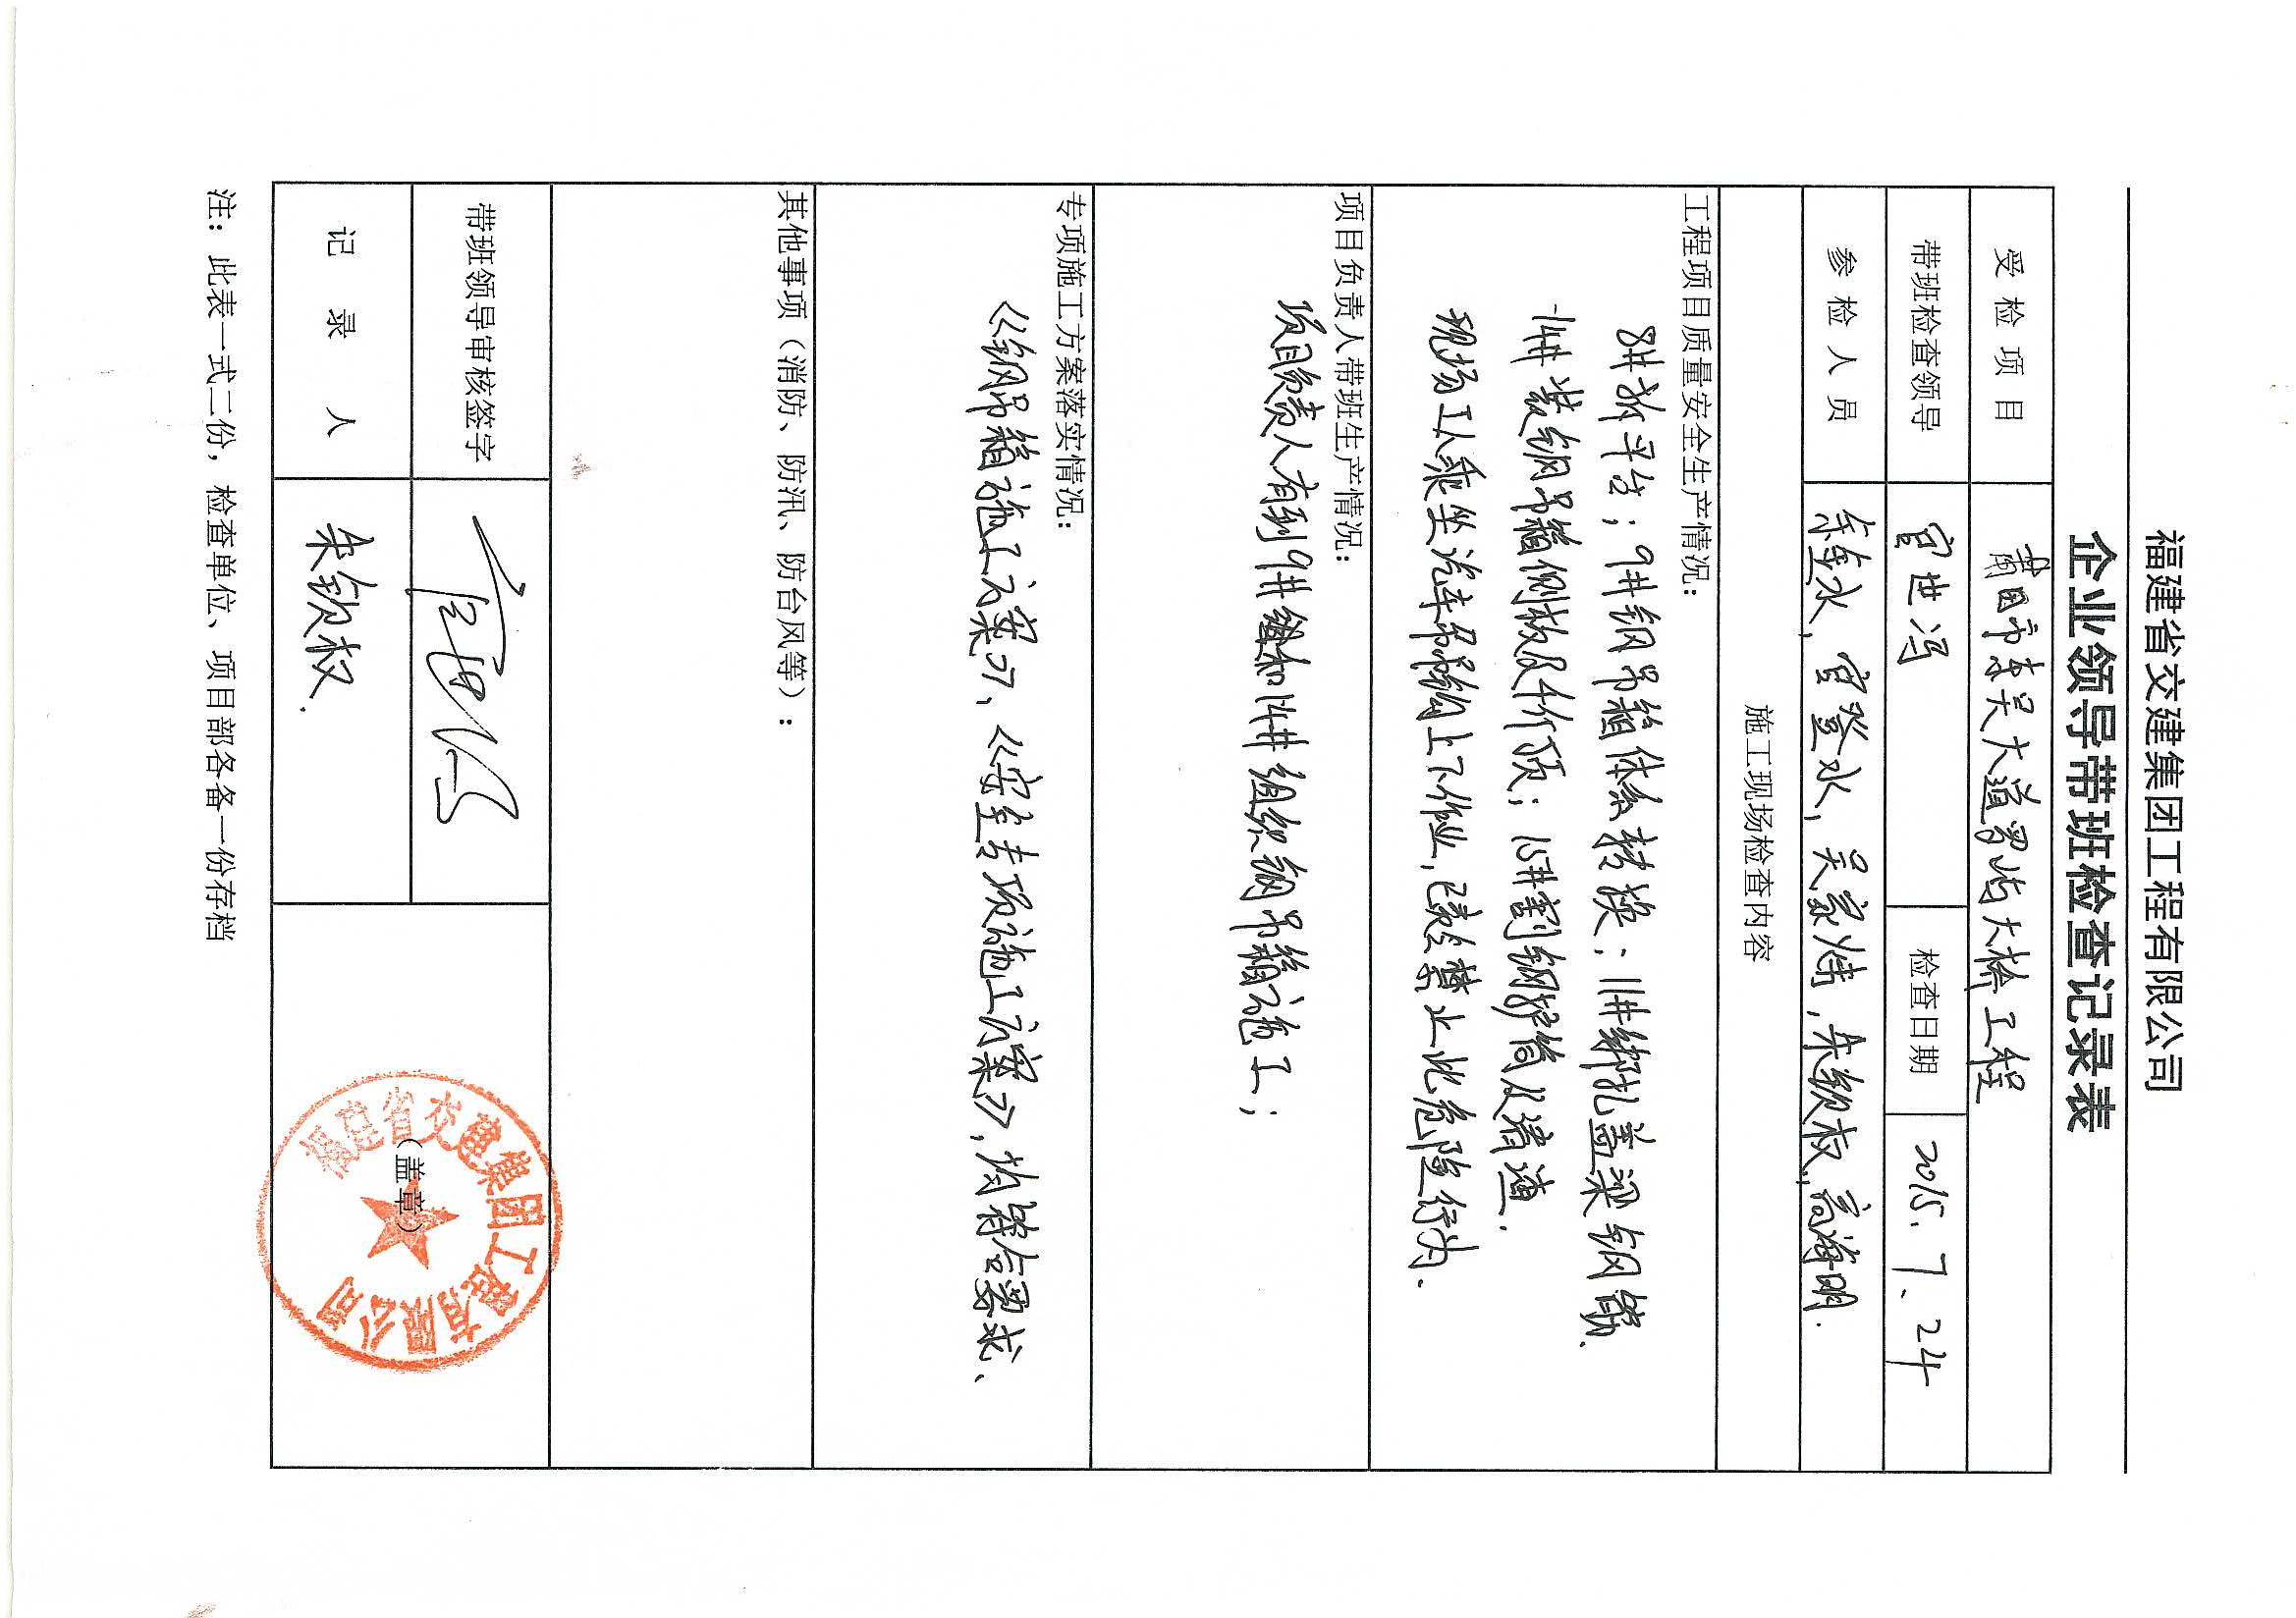 福建省交建集团工程有限公司
企业领导带班检查记录表
受检项目 莆田市东吴大道罗屿大桥工程
带班检查领导 官世冯 检查日期 2015.7.24
参检人员 官登水, 吴家炜, 朱钦权, 高海明.
施工现场检查内容
工程项目质量安全生产情况:
8#拆平台; 9#钢吊箱体系转换; 11#绑扎盖梁钢筋、
14#装钢吊箱侧板及千斤顶; 15#割钢护筒及清渣.
现场工人乘坐汽车吊吊钩上下作业,已责令禁止此危险行为.
项目负责人带班生产情况:
项目负责人有到9#墩和14#组织钢吊箱施工;
专项施工方案落实情况:
《钢吊箱施工方案》、《安全专项施工方案》,均符合要求、
其他事项（消防、防汛、防台风等）:
带班领导审核签字
记录人 朱钦权.
（盖章）
福建省交建集团工程有限公司
注: 此表一式二份, 检查单位、项目部各备一份存档